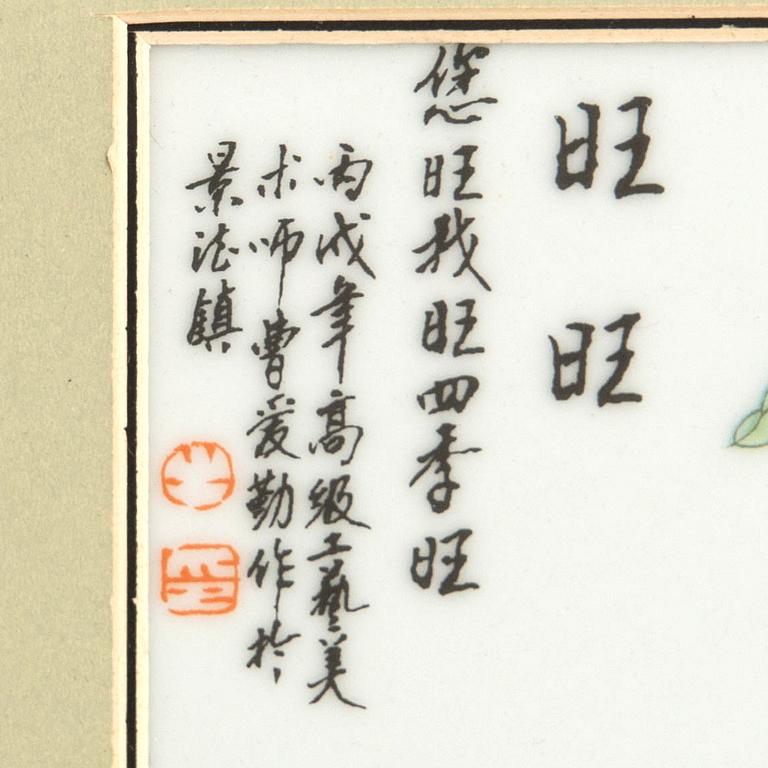 旺旺
您旺我旺四季旺
丙戌年高级工藝美
术师曹爱勤作於
景德镇